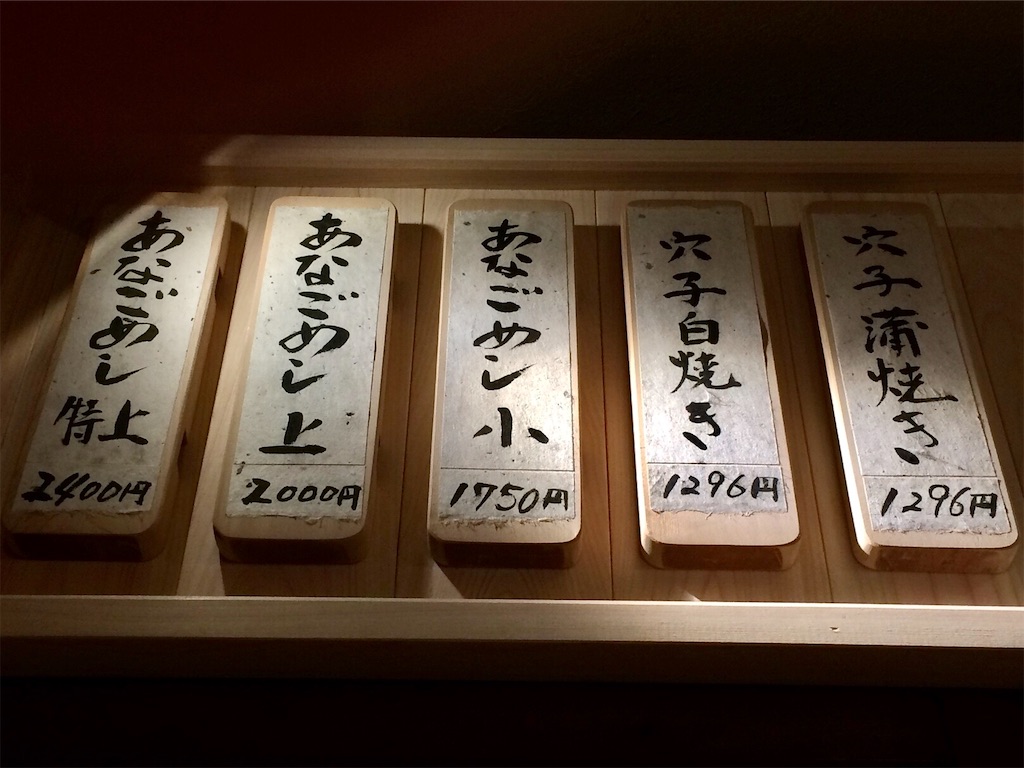 あなごめし 特上
2400円
あなごめし 上
2000円
あなごめし 小
1750円
穴子白焼き
1296円
穴子蒲焼き
1296円